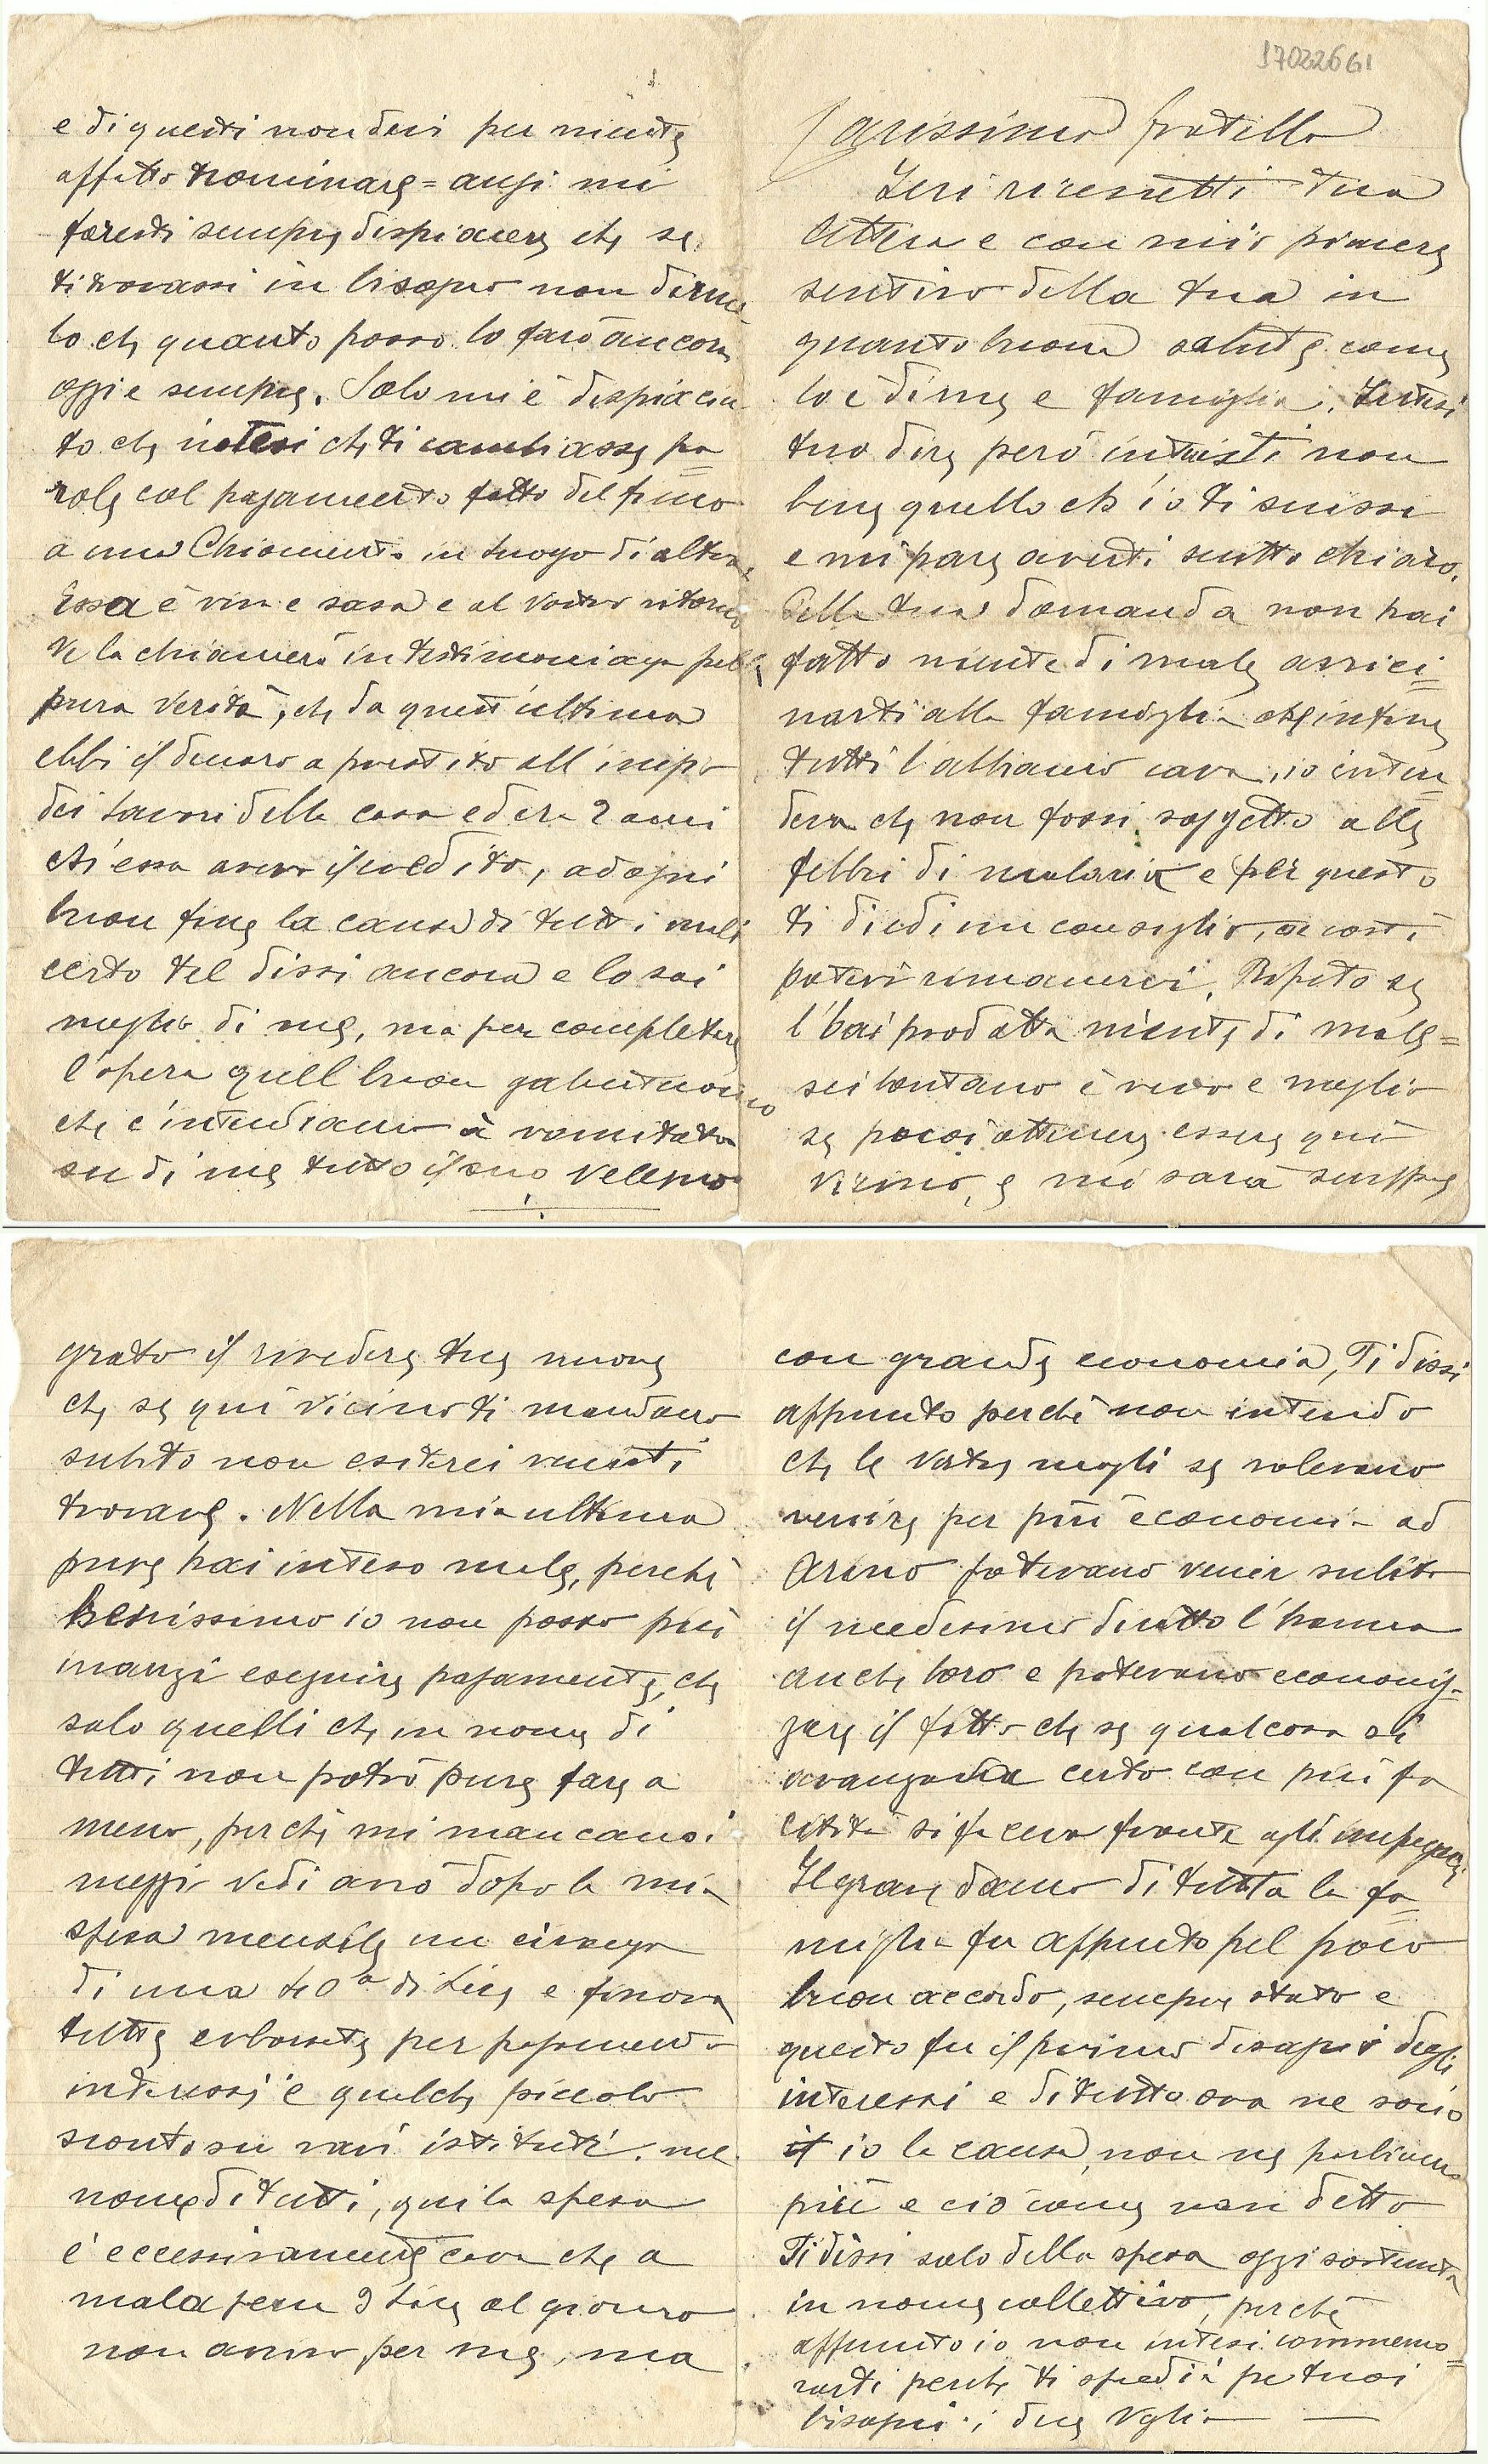 17022661
Carissimo fratello
Ieri ricevetti tua
lettera e con mio piacere
sentivo della tua in
quanto buona salute come
lo è di me e famiglia. Intesi
tuo dire però intuisti non
bene quello ch'io ti scrissi
e mi pare averti scritto chiaro.
Della tua domanda non hai
fatto niente di male avvici=
narti alla famiglia che infine
tutti l'abbiamo cara, io inten=
deva che non fossi soggetto alle
febbri di malaria e per questo
ti diedi un consiglio, se costì
potevi rimanervi. Ripeto se
l'hai prodotta niente di male=
sei lontano è vero e meglio
se puoi ottenere essere quì
vicino, e mi sarà sempre
grato il rivedere tue nuove
che se quì vicino ti mandano
subito non esiterei venirti
trovare. Nella mia ultima
pure hai inteso male, perchè
benissimo io non posso più
inanzi eseguire pagamente, che
solo quelli che in nome di
tutti non potrò pure fare a
meno, perchè mi mancano i
mezzi vedi anò dopo la mia
spesa mensile un civanzo
di una 40a di Lire e finora
tutte erborate per pagamento
interessi e qualche piccolo
sconto su vari istituti. nel
nome di tutti, qui la spesa
è eccessivamente cara che a
mala pena 9 Lire al giorno
non anno per me, ma
con grande economia, Ti dissi
appunto perchè non intendo
che le vostre mogli se volevano
venire per più economia ad
Arino potevano venir subito
il medesimo diritto l'hanno
anche loro e potevano economiz-
zare il fitto che se qualcosa si
avanzava certo con più fa
cilità si faceva fronte agli impegni
Il grave danno di tutta la fa=
miglia fu appunto pel poco
buon accordo, sempre stato e
questo fu il primo disagio degli
interessi e di tutto ora ne sono
io la causa, non ne parliamo
più e ciò come non detto
Ti dissi solo della spesa oggi sostenuta
in nome collettivo, perchè
appunto io non intesi commemo=
rarti perchè ti spedii pe tuoi
bisogni i due Vglia
e di questi non devi per niente
affatto nominare= anzi mi
faresti sempre dispiacere che se
ti trovassi in bisogno non dirme
lo che quanto posso lo farò ancora
oggi e sempre. Solo mi è dispiaciu
to che intesi che ti cambiasse pa=
role col pagamento fatto del fieno
a una Chiamenti in luogo di altra
Essa è viva e sana e al vostro ritorno
ve la chiamerò in testimonianza pella
pura verità, che da quest'ultima
ebbi il denaro a prestito all'inizio
dei lavori della casa ed era 2 anni
ch'essa aveva il credito, ad ogni
buon fine la causa di tutti i mali
certo tel dissi ancora e lo sai
meglio di me, ma per completare
l'opera quell buon galantuomo
che c'intendiamo à vomitato
su di me tutto il suo veleno